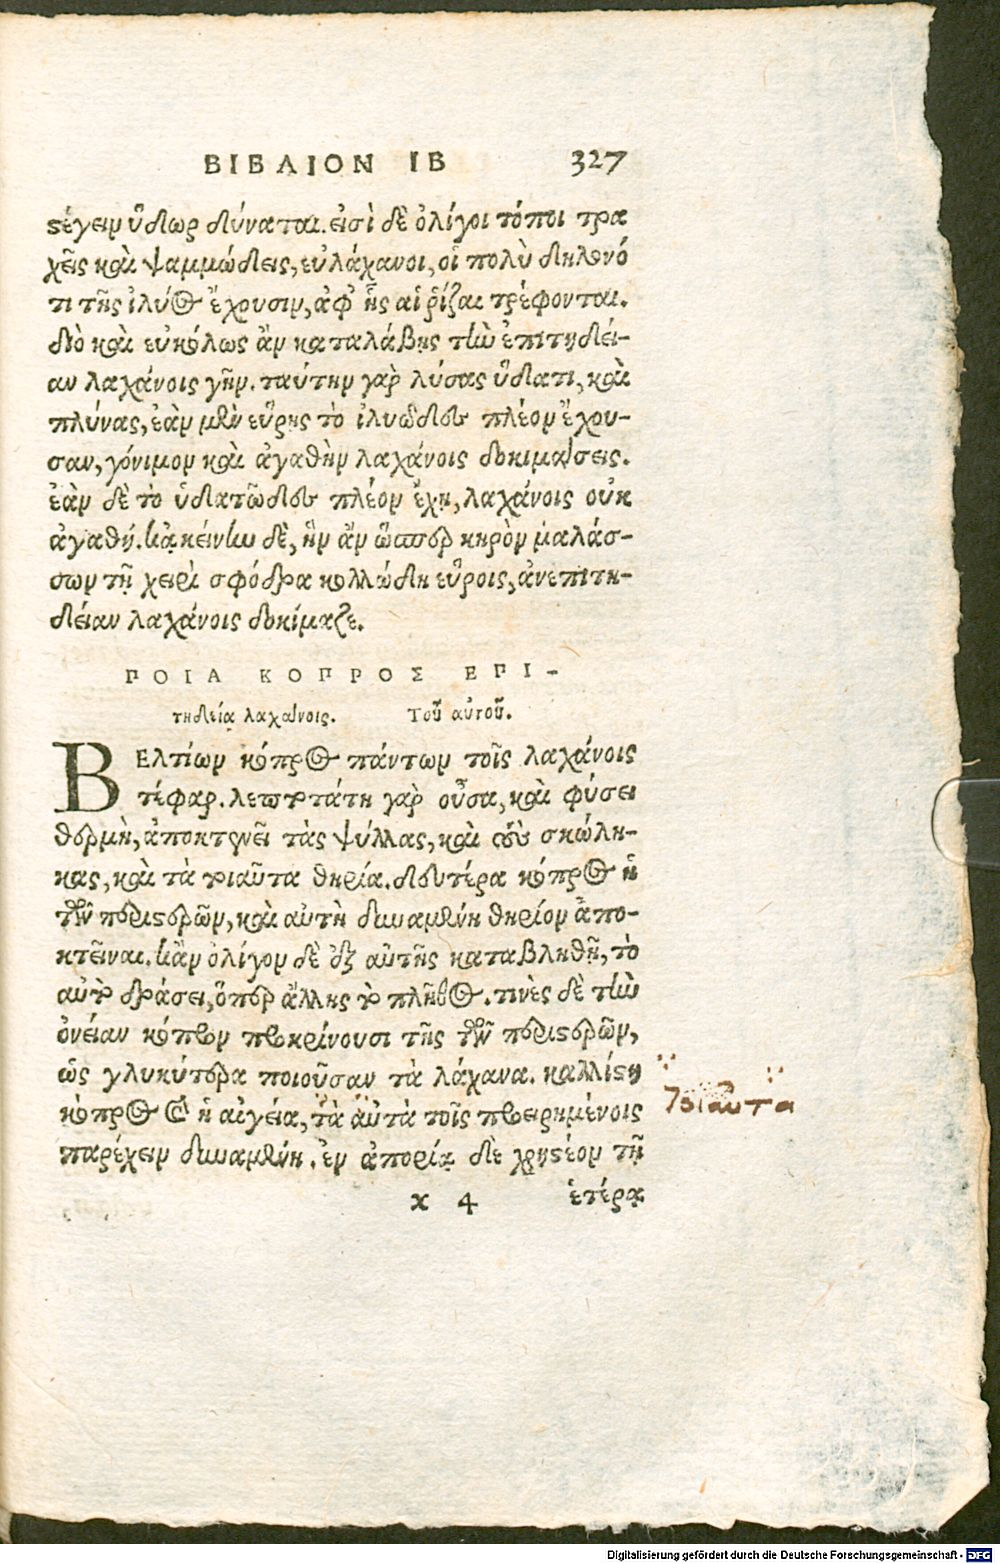 ΒΙΒΛΙΟΝ ΙΒ 327
στέγειν ὕδωρ δύναται. εἰσὶ δὲ ὀλίγοι τόποι τρα
χεῖς καὶ ψαμμώδεις, εὐλάχανοι, οἳ πολὺ δηλονό
τι τῆς ἰλύος ἔχουσιν, ἀφ' ἧς αἱ ῥίζαι τρέφονται.
διὸ καὶ εὐκόλως ἂν καταλάβῃς τὴν ἐπιτηδεί-
αν λαχάνοις γῆν. ταύτην γὰρ λύσας ὕδατι, καὶ
πλύνας, ἐὰν μὲν εὕρῃς τὸ ἰλυῶδες πλέον ἔχου-
σαν, γόνιμον καὶ ἀγαθὴν λαχάνοις δοκιμάσεις.
ἐὰν δὲ τὸ ὑδατῶδες πλέον ἔχῃ, λαχάνοις οὐκ
ἀγαθή. κᾀκείνην δὲ, ἣν ἂν ὥσπερ κηρὸν μαλάσ-
σων τῇ χειρὶ σφόδρα κολλώδη εὕροις, ἀνεπιτη-
δείαν λαχάνοις δοκίμαζε.
ΠΟΙΑ ΚΟΠΡΟΣ ΕΠΙ-
τηδεία λαχάνοις. Τοῦ αὐτοῦ.
ΒΕλτίων κόπρος πάντων τοῖς λαχάνοις
τέφαρ. λεπτοτάτη γὰρ οὖσα, καὶ φύσει
θερμὴ, ἀποκτενεῖ τὰς ψύλλας, καὶ τοὺς σκώλη-
κας, καὶ τὰ τοιαῦτα θηρία. δευτέρα κόπρος ἡ
τῶν περιστερῶν, καὶ αὐτὴ δυναμένη θηρίον ἀπο-
κτεῖναι. κἂν ὀλίγον δὲ ἐξ αὐτῆς καταβληθῇ, τὸ
αὐτὸ δράσει, ὅπερ ἄλλης τὸ πλῆθος. τινὲς δὲ τὴν
ὀνείαν κόπρον προκρίνουσι τῆς τῶν περιστερῶν,
ὡς γλυκύτερα ποιοῦσαν τὰ λάχανα. καλλίστη
κόπρος καὶ ἡ αἰγεία, τὰ αὐτὰ τοῖς προειρημένοις
τοιαῦτα
παρέχειν δυναμένη. ἐν ἀπορίᾳ δὲ χρηστέον τῇ
χ 4 ἑτέρᾳ
Digitalisierung gefördert durch die Deutsche Forschungsgemeinschaft - DFG